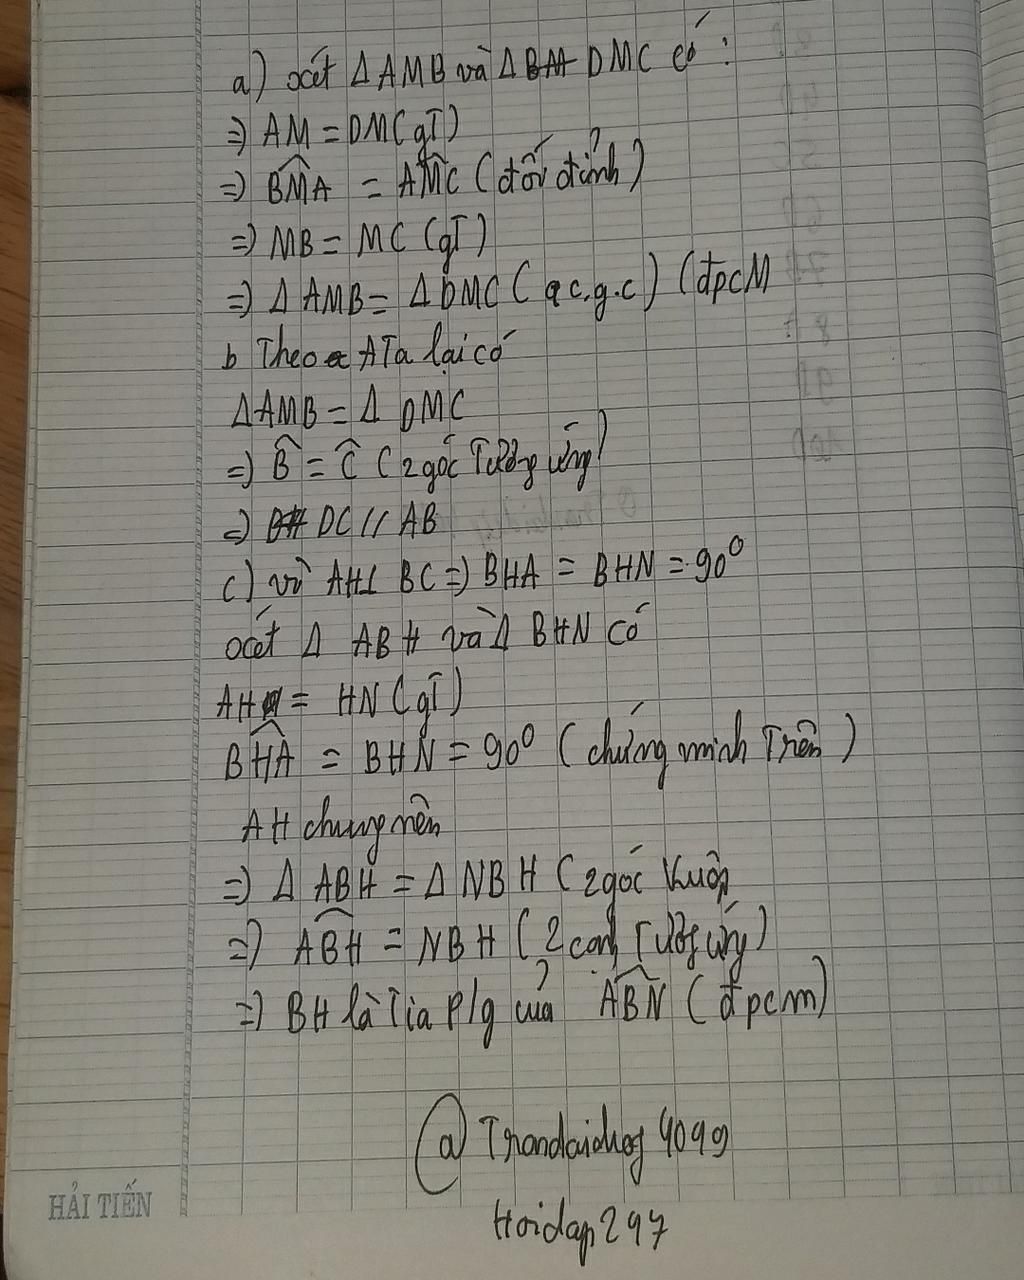 a) xét Δ AMB và Δ DMC có:
=) AM = DM (gT)
=) BMA = AMC (đối đỉnh)
=) MB = MC (gT)
=) Δ AMB = Δ DMC ( c.g.c) (đpcM
b Theo A Ta lại có
Δ AMB = Δ DMC
=) B̂ = Ĉ (2 góc Tương ứng)
=) DC // AB
c) vì AH⊥ BC =) BHA = BHN = 90⁰
xét Δ ABH và Δ BHN có
AH = HN (gT)
BHA = BHN = 90⁰ (chứng minh Trên)
AH chung nên
=) Δ ABH = Δ NBH (2 góc Vuôg
=) ABH = NBH (2 cạnh Tươg ứng)
=) BH là Tia P/g của ABN (đpcm)
@ Trandaidug 4099
Hoidap 297
HẢI TIẾN